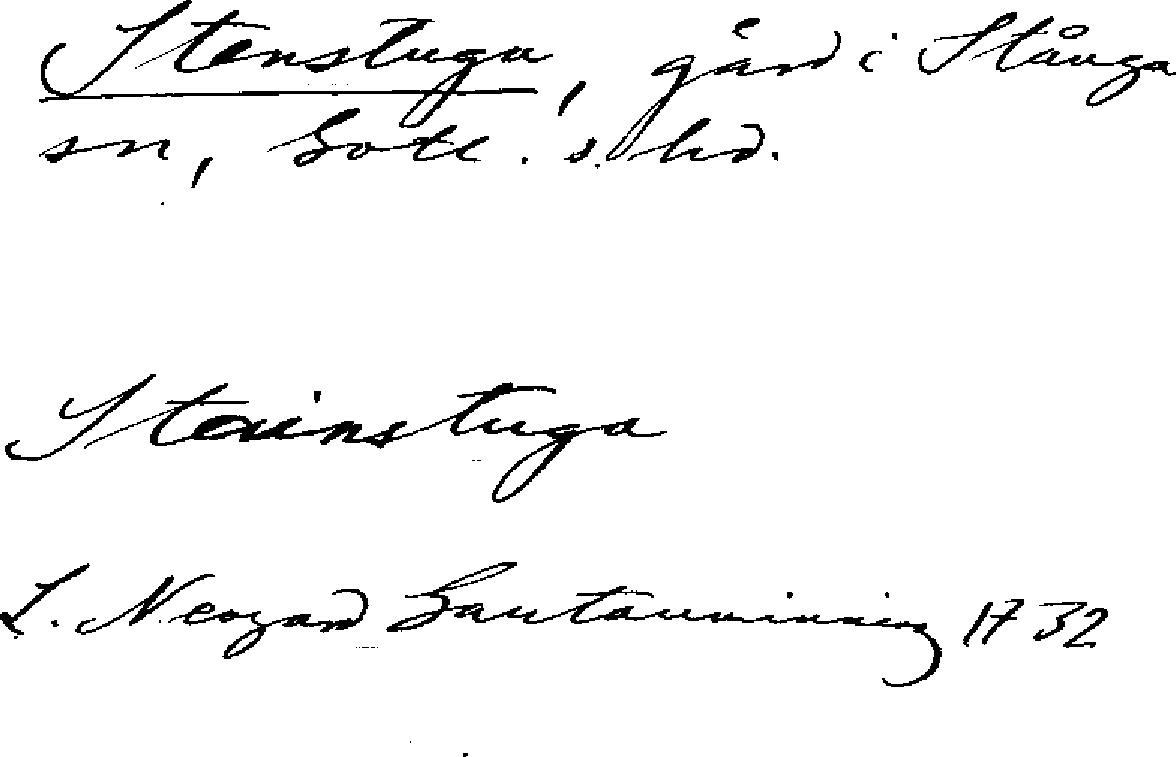 Stenstuga, gård i Stånga
sn, Gotl. s. hd.
Stainstuga
L. Neogard Gautauminning 1732